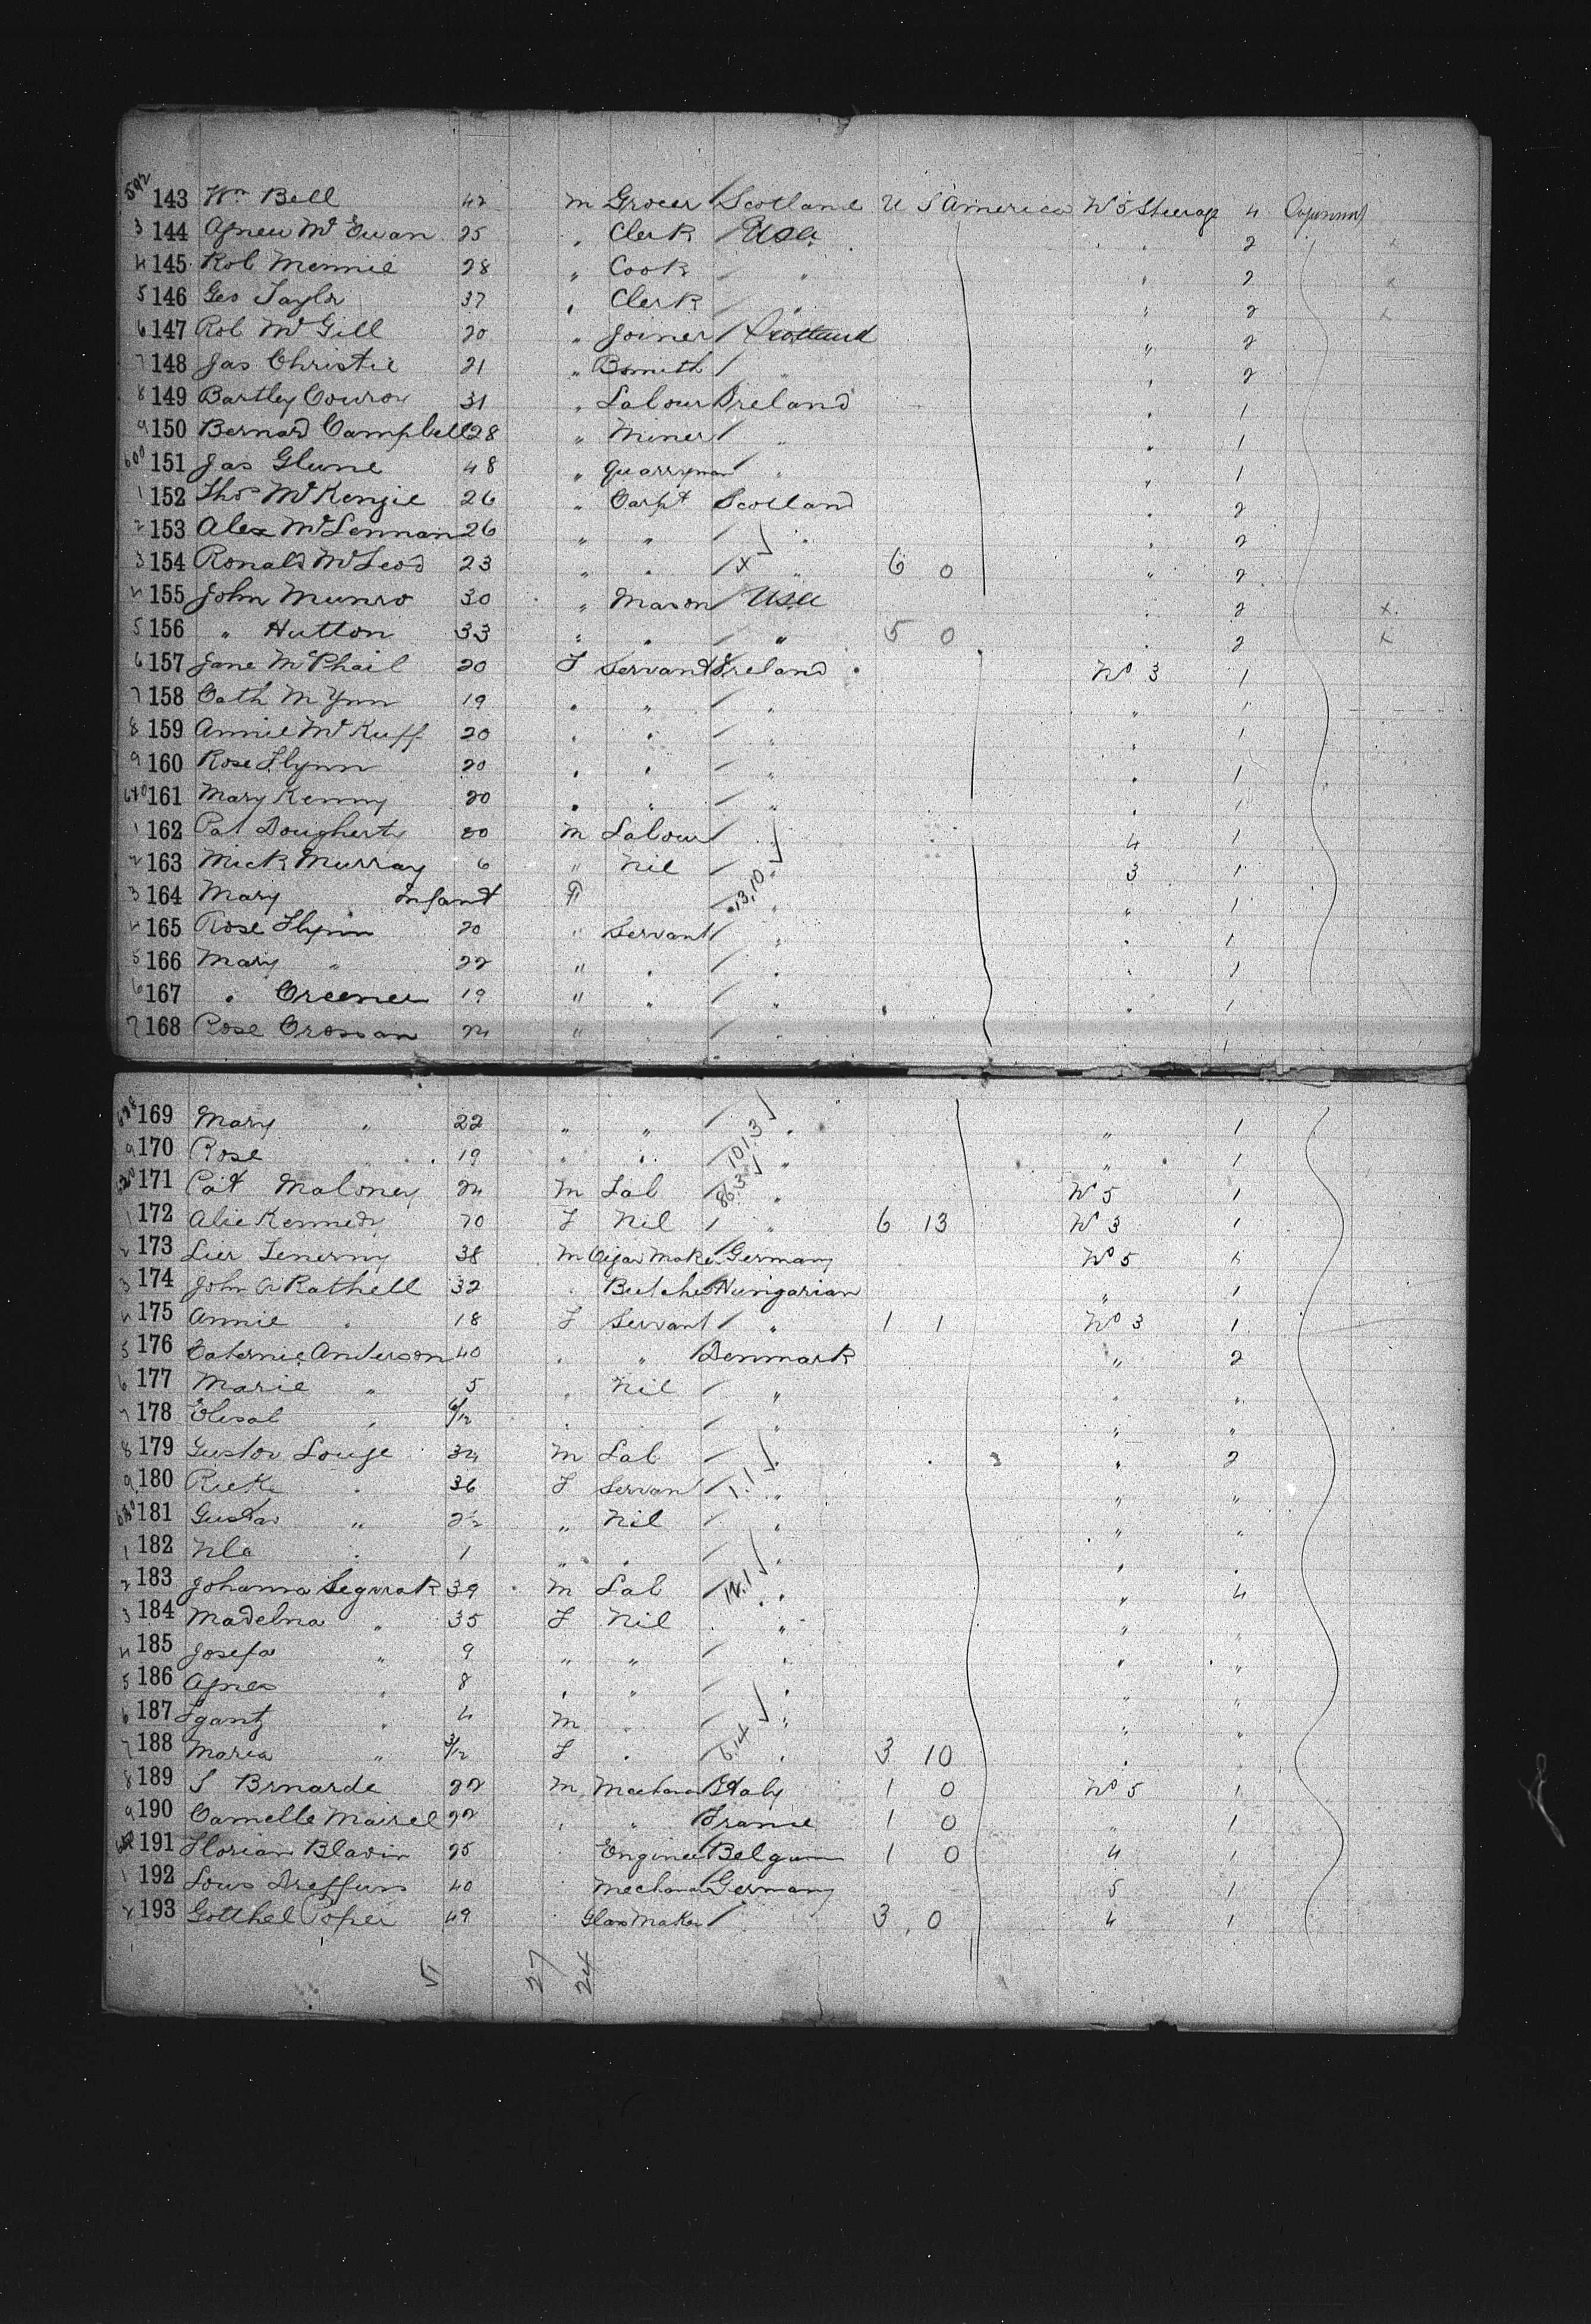 592 143 Wm Bell 42 m Grocer Scotland U S America No 5 Steerage 4
3 144 Agnew McEwan 25 " Clerk USA " 2 x
4 145 Rob Mennie 28 " Cook " " 2 x
5 146 Geo Taylor 37 " Clerk " " 2 x
6 147 Rob McGill 20 " Joiner Scotland " 2
7 148 Jas Christie 21 " Bsmith " " 2
8 149 Bartley 31 " Labour Ireland " 1
9 150 Bernard Campbell 28 " Miner " " 1
600 151 Jas Glune 48 " Quarryman " " 1
1 152 Thos McKenzie 26 " Carpt Scotland " 2
2 153 Alex McLennan 26 " " " " 2
3 154 Ronald McLeod 23 " " x " 6 0 " 2
4 155 John Munro 30 " Mason USA " 2 x
5 156 " Hutton 33 " " " 5 0 " 2 x
6 157 Jane McPhail 20 F Servant Ireland No 3 1
7 158 Cath 19 " " " " 1
8 159 Annie McKuff 20 " " " " 1
9 160 Rose Flynn 20 " " " " 1
610 161 Mary Kenny 20 " " " " 1
1 162 Pat Dougherty m Labour " 4 1
2 163 Mick Murray 6 " Nil " 3 1
3 164 Mary Infant F 13,10 " " 1
4 165 Rose Flynn 20 " Servant " " 1
5 166 Mary " 22 " " " " 1
6 167 " Creener 19 " " " " 1
7 168 Rose Crossan 24 " " " 1
618 169 Mary " 22 " " " " 1
9 170 Rose " 19 " " 101.3 " " 1
620 171 Pat Maloney 24 m Lab 86.3 " No 5 1
1 172 Alie Kennedy 70 F Nil " 6 13 No 3 1
2 173 Lier 38 m Cigar Make Germany No 5
3 174 John A Rathell 32 " Butcher Hungarian " 1
4 175 Annie " 18 F Servant " 1 1 No 3 1
5 176 Caternie Anderson 40 " " Denmark " 2
6 177 Marie " 5 " Nil " " "
7 178 Elisab " 6/12 " " " "
8 179 Gustov Louge 34 m Lab " " 2
9 180 Rieke " 36 F Servan 1.1 " " "
630 181 Gustav " 2½ " Nil " " "
1 182 " 1 " " " " "
2 183 Johanna Segwrak 39 m Lab 12.1 " " 4
3 184 Madelna " 35 F Nil " " "
4 185 Josefa " 9 " " " " "
5 186 Agnes " 8 " " " " "
6 187 Igantz " 4 m " " " "
7 188 Maria " 3/12 F " 6.14 " 3 10 " "
8 189 S Brnarde 22 m Mechanic Italy 1 0 No 5 1
9 190 Camelle Mairel 22 " " France 1 0 " 1
191 Florian Blavin 25 Enginee Belgium 1 0 4 1
1 192 Lous Dreffuss 40 Mechanic Germany 5 1
2 193 Gotthel Poper 49 Glass Maker 3 0 4 1
5 27 24